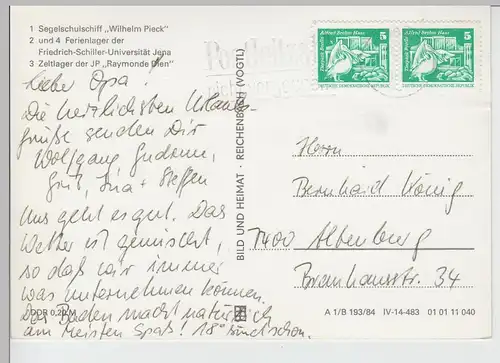 1 Segelschulschiff „Wilhelm Pieck"
2 und 4 Ferienlager der
Friedrich-Schiller-Universität Jena
3 Zeltlager der JP „Raymonde Dien"
Lieber Opa!
Die herzlichsten Urlaubs-
grüße senden Dir
Wolfgang Gudrun,
Grit, Ina + Steffen
Uns geht es gut. Das
Wetter ist gemischt,
so daß wir immer
was unternehmen können.
Das Baden macht natürlich
am Meisten Spaß! 18° sind schon.
DDR 0,20 M
BILD UND HEIMAT · REICHENBACH (VOGTL)
Alfred Brehm Haus
5
DEUTSCHE DEMOKRATISCHE REPUBLIK
Alfred Brehm Haus
5
DEUTSCHE DEMOKRATISCHE REPUBLIK
Herrn
Bernhard König
7400 Altenburg
Brauhausstr. 34
A 1/B 193/84 IV-14-483 01 01 11 040